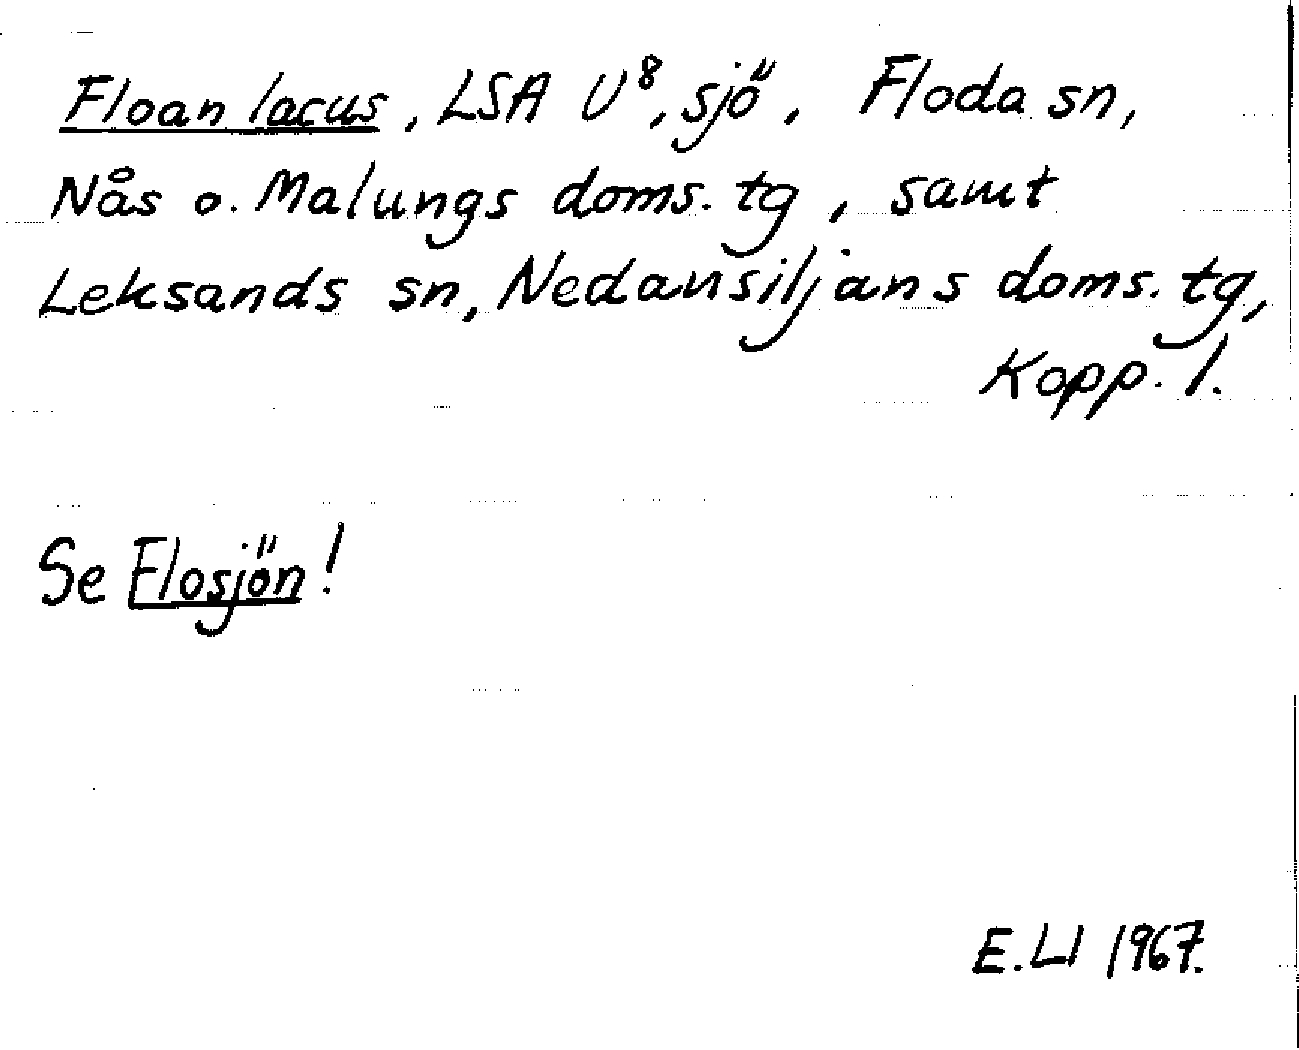 Floan lacus, LSA U⁸, sjö, Floda sn,
Nås o. Malungs doms. tg, samt
Leksands sn, Nedansiljans doms. tg,
Kopp. l.
Se Flosjön!
E. Ll 1967.